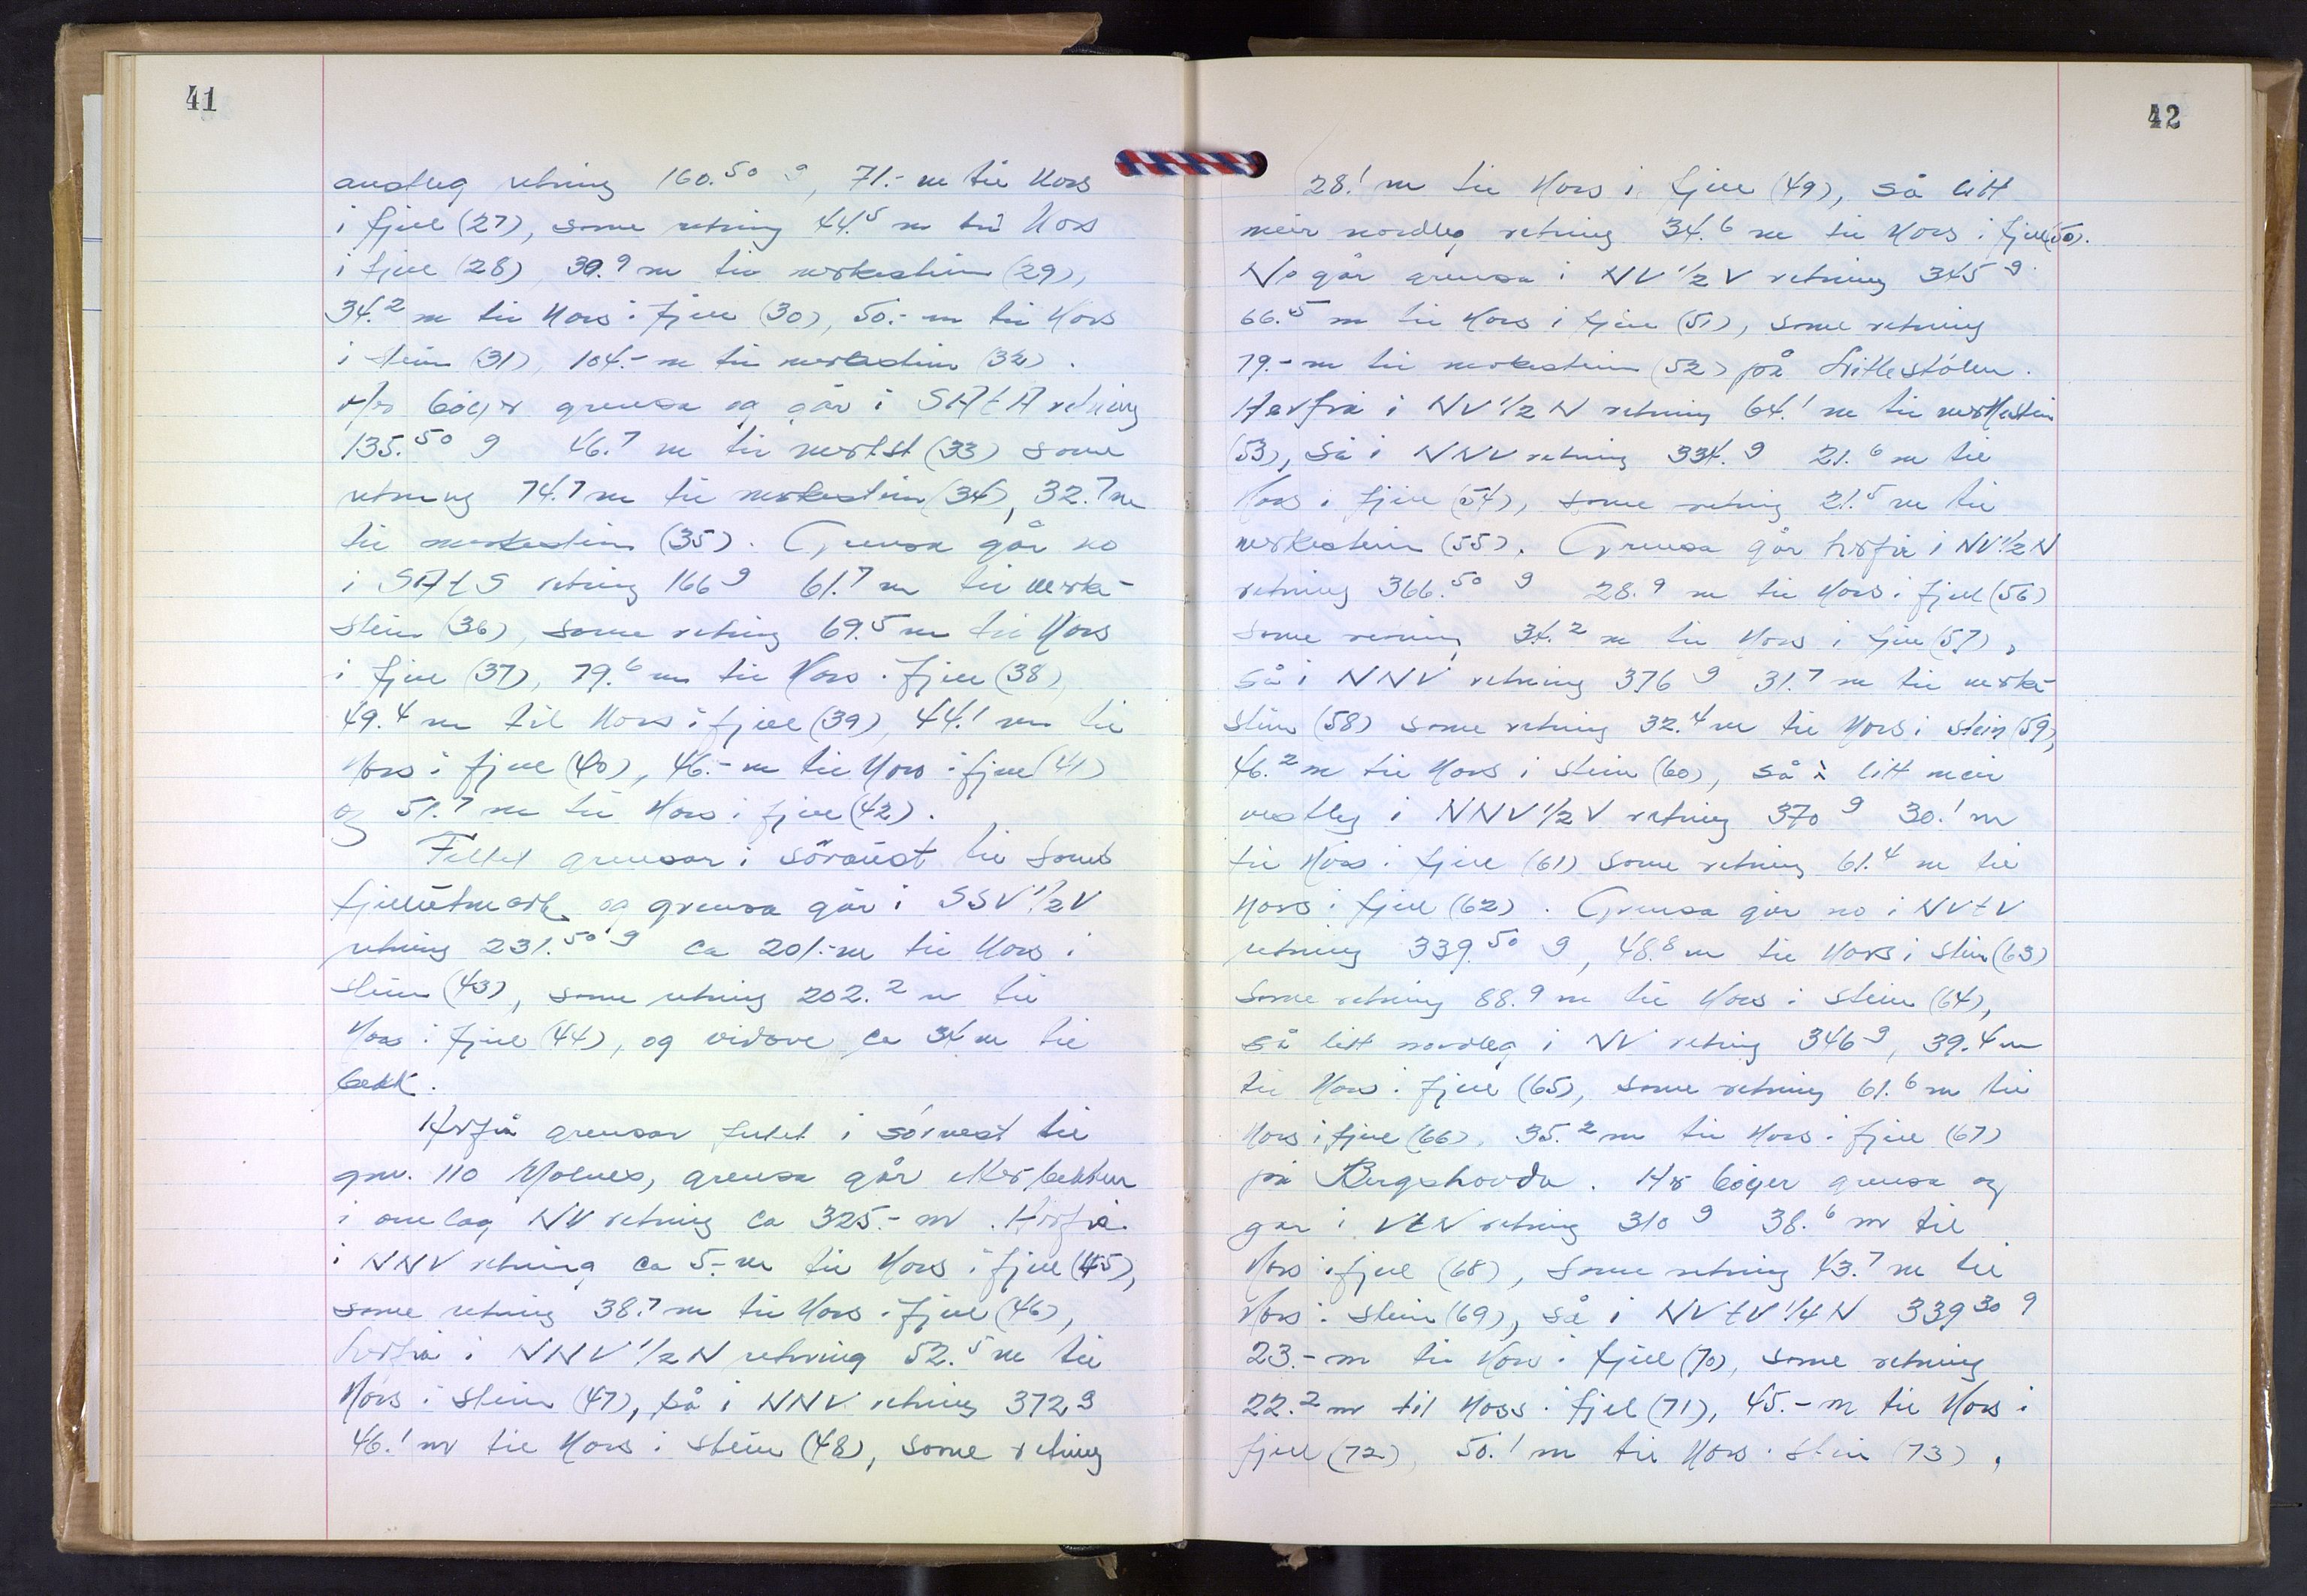 41
austleg retning 160.50 g, 71.- m til kors
i fjell (27), same retning 44.5 m til kors
i fjell (28), 30.9 m til merkestein (29),
34.2 m til kors i fjell (30), 50.- m til kors
i stein (31), 104.- m til merkestein (32).
Her bøyer grensa og går i SAtA retning
135.50 g 46.7 m til merkst (33) same
retning 74.7 m til merkestein (34), 32.7 m
til merkestein (35). Grensa går no
i SAtS retning 166 g 61.7 m til merke-
stein (36), same retning 69.5 m til kors
i fjell (37), 79.6 m til kors i fjell (38)
49.4 m til kors i fjell (39), 44.1 m til
kors i fjell (40), 46.- m til kors i fjell (41)
og 51.7 m til kors i fjell (42).
Feltet grensar i søraust til
fjellutmark og grensa går i SSV 1/2 V
retning 231.50 g ca 201.- m til kors i
stein (43), same retning 202.2 m til
kors i fjell (44), og vidare ca 34 m til
bekk.
Herfrå grensar feltet i sørvest til
gnr. 110 Molnes, grensa går etter bekken
i om lag NV retning ca 325.- m. Herfrå
i NNV retning ca 5.- m til kors i fjell (45),
same retning 38.7 m til kors i fjell (46),
herfrå i NNV 1/2 N retning 52.5 m til
kors i stein (47), så i NNV retning 372 g
46.1 m til kors i stein (48), same retning
42
28.1 m til kors i fjell (49), så litt
meir nordleg retning 34.6 m til kors i fjell (50).
No går grensa i NV 1/2 V retning 345 g
66.5 m til kors i fjell (51), same retning
79.- m til merkestein (52) på Litlestølen.
Herfrå i NV 1/2 N retning 64.1 m til merkestein
(53), så i NNV retning 334. g 21.6 m til
kors i fjell (54), same retning 21.5 m til
merkestein (55). Grensa går herfrå i NV 1/2 N
retning 366.50 g 28.9 m til kors i fjell (56)
same retning 34.2 m til kors i fjell (57),
så i NNV retning 376 g 31.7 m til merke-
stein (58) same retning 32.4 m til kors i stein (59),
46.2 m til kors i stein (60), så i litt meir
vestleg i NNV 1/2 V retning 370 g 30.1 m
til kors i fjell (61) same retning 61.4 m til
kors i fjell (62). Grensa går no i NVtV
retning 339.50 g, 48.8 m til kors i stein (63)
same retning 88.9 m til kors i stein (64),
så litt nordleg i NV retning 346 g, 39.4 m
til kors i fjell (65), same retning 61.6 m til
kors i fjell (66), 35.2 m til kors i fjell (67)
på Bergshovda. Her bøyer grensa og
går i VtN retning 310 g 38.6 m til
kors i fjell (68), same retning 43.7 m til
kors i stein (69), så i NVtV 1/4 N 339 30 g
23.- m til kors i fjell (70), same retning
22.2 m til kors i fjell (71), 45.- m til kors i
fjell (72), 50.1 m til kors i stein (73),